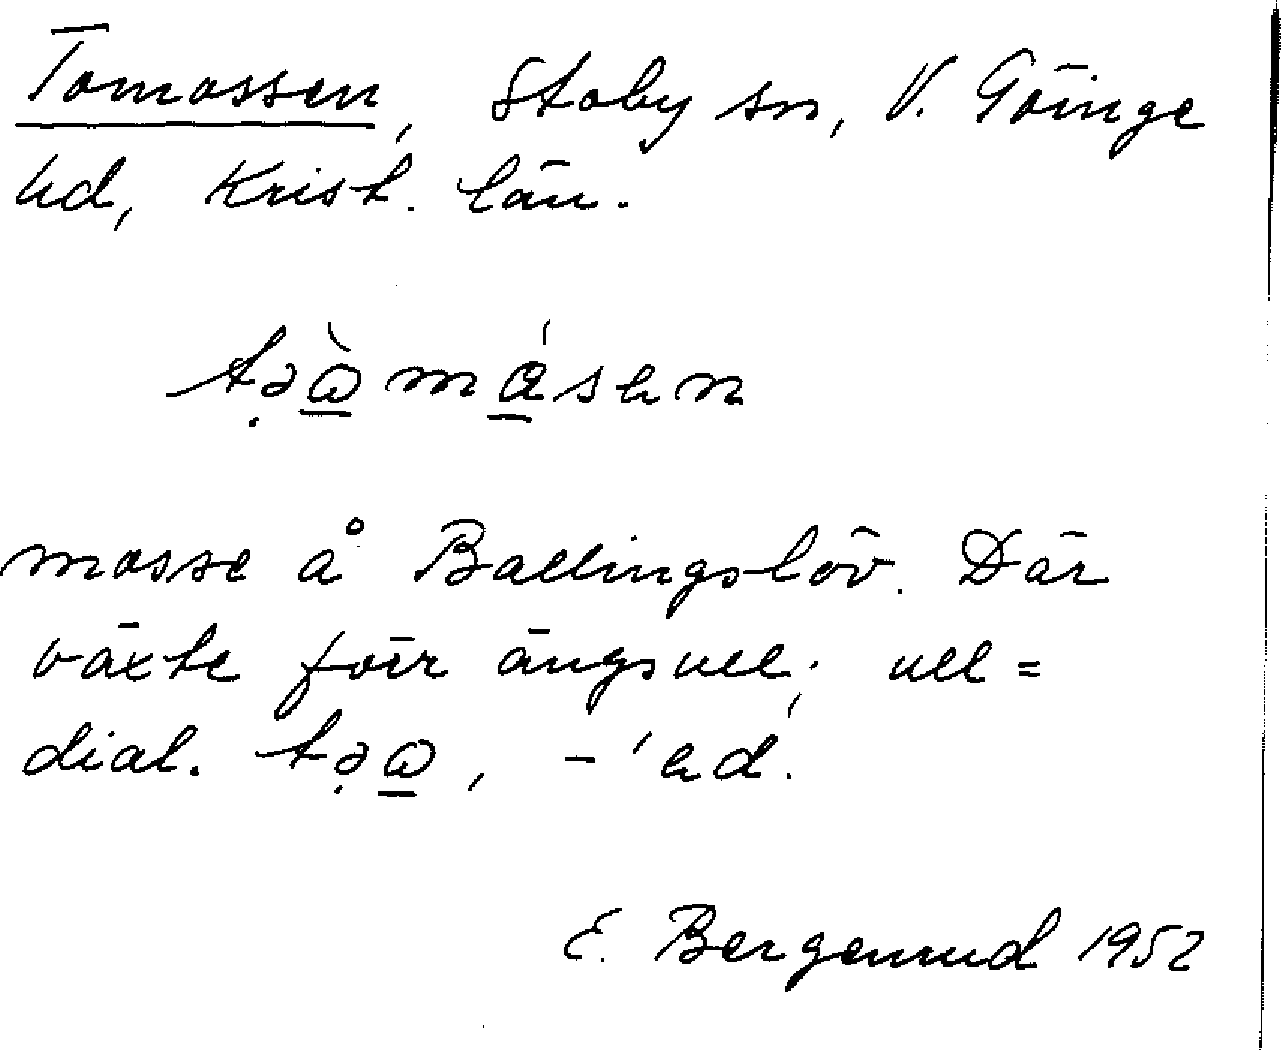 Tomossen, Stoby sn, V. Göinge
hd, Krist. län.
tə̣ὰmásen
mosse å Ballingslöv. Där
växte förr ängsull; ull =
dial. tə̣a, -'ed.
E. Bergenrud 1952